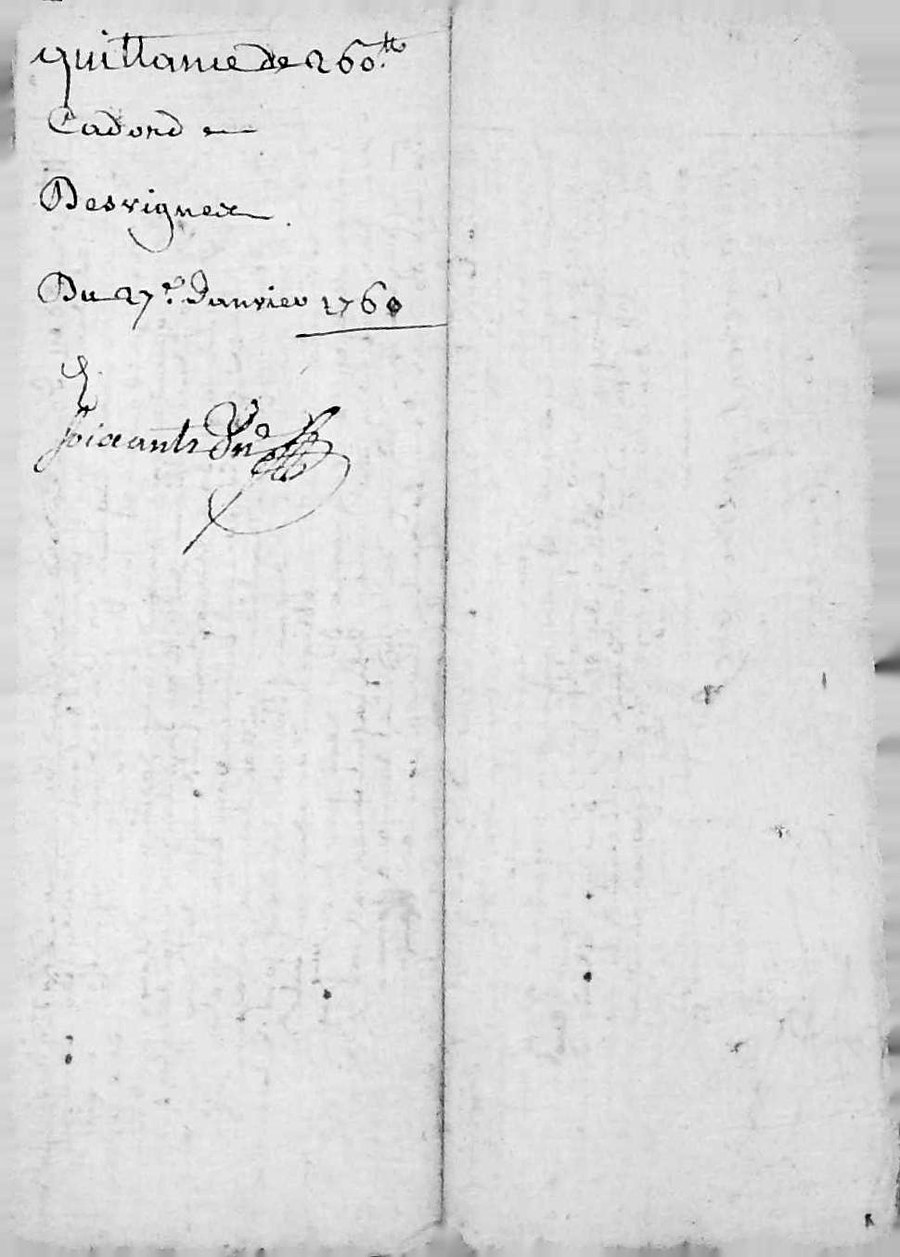 quittance de 260.tt
Cadord
Desvignes
Du 27.e Janvier 1760
soixante Un